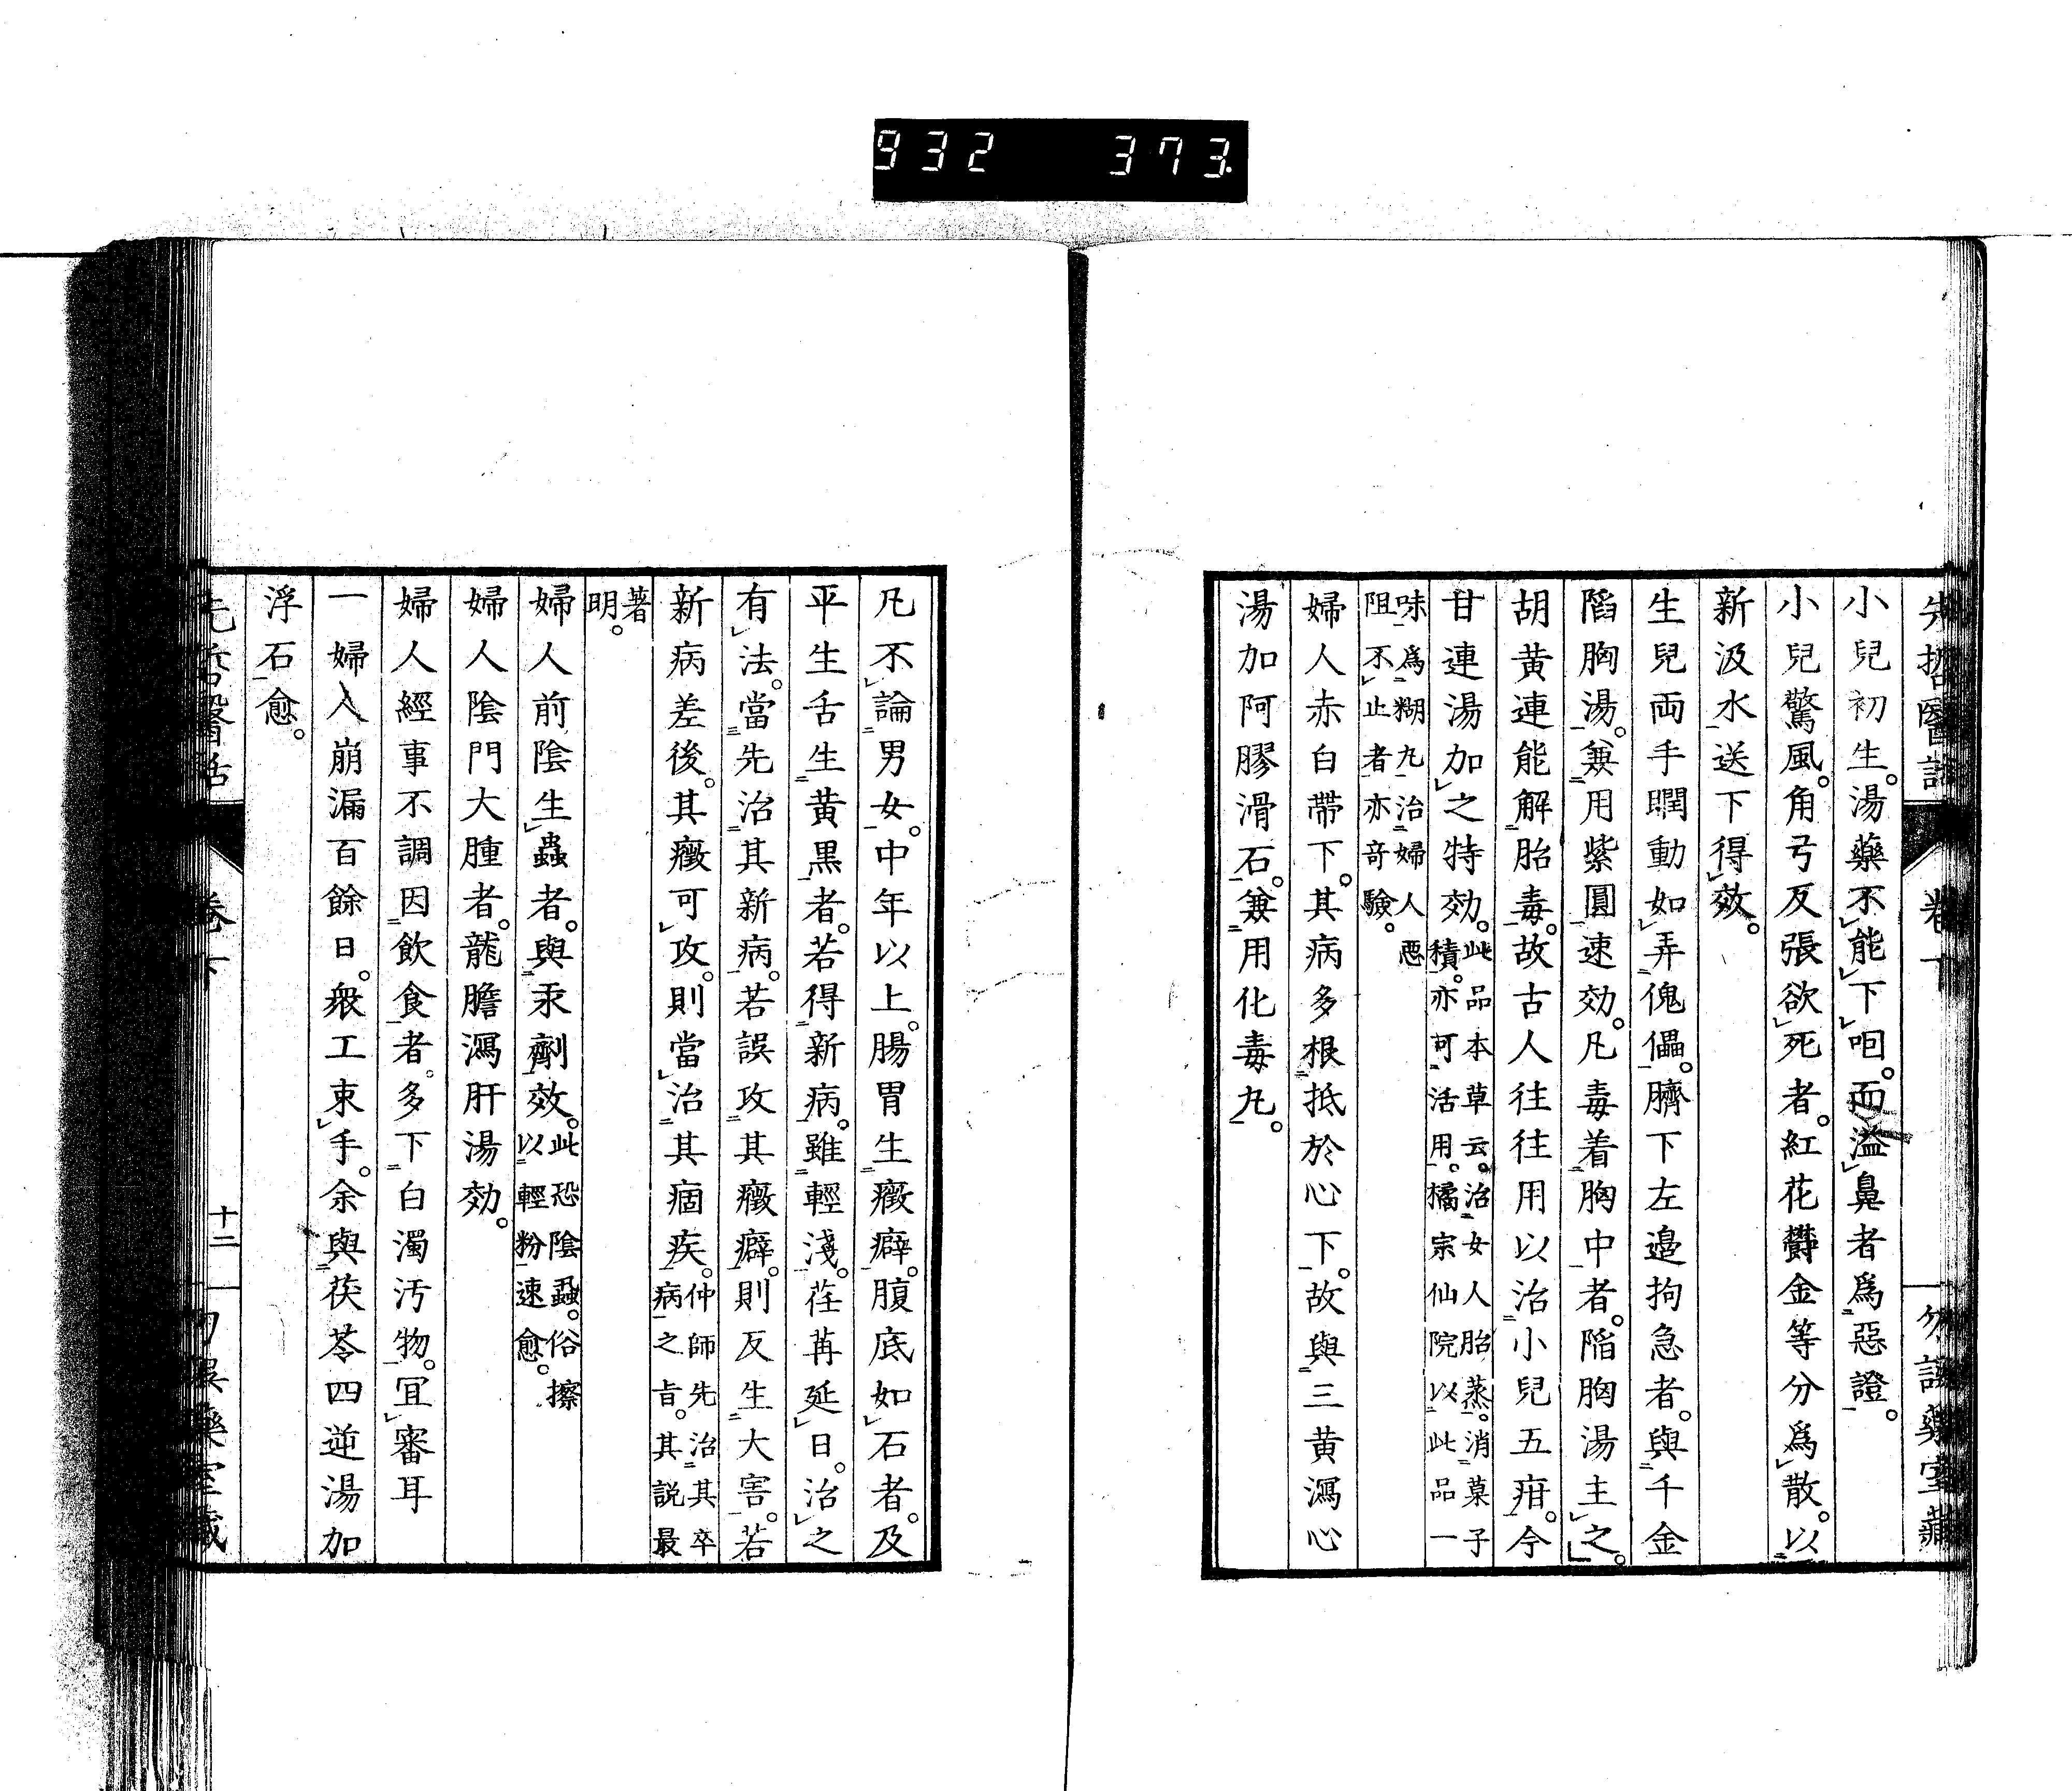 932 373
先哲醫話 卷下 勿誤藥室藏
小兒初生。湯藥不能下咽。而溢鼻者爲惡證。
小兒驚風。角弓反張欲死者。紅花欝金等分爲散。以
新汲水送下得效。
生兒両手瞤動如弄傀儡。臍下左邉拘急者。與千金
陷胸湯。兼用紫圓速効。凡毒着胸中者。陷胸湯主之。
胡黄連能解胎毒。故古人往往用以治小兒五疳。今
甘連湯加之特効。此品本草云。治女人胎蒸。消菓子
積。亦可活用。橘宗仙院以此品一
味爲糊丸。治婦人惡
阻不止者。亦奇驗。
婦人赤白帶下。其病多根抵於心下。故與三黄瀉心
湯加阿膠滑石。兼用化毒丸。
凡不論男女。中年以上。腸胃生癥癖。腹底如石者。及
平生舌生黄黒者。若得新病。雖輕淺。荏苒延日。治之
有法。當先治其新病。若誤攻其癥癖。則反生大害。若
新病差後。其癥可攻。則當治其痼疾。仲師先治其卒
病之旨。其説最
著
明。
婦人前陰生蟲者。與汞劑效。此恐陰蝨。俗擦
以輕粉速愈。
婦人陰門大腫者。龍膽瀉肝湯効。
婦人經事不調因飲食者。多下白濁汚物。冝審耳
一婦人崩漏百餘日。衆工束手。余與茯苓四逆湯加
浮石愈。
先哲醫話 卷下 十二 勿誤藥室藏